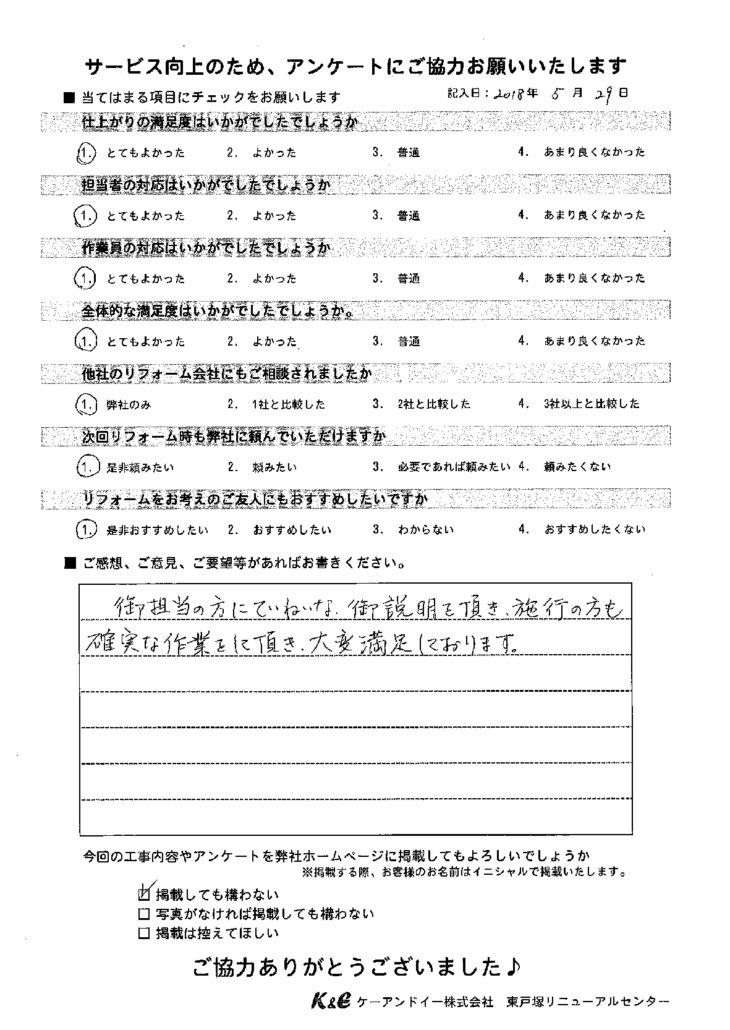 サービス向上のため、アンケートにご協力お願いいたします
■ 当てはまる項目にチェックをお願いします 記入日：2018年 5 月 29日
仕上がりの満足度はいかがでしたでしょうか
1. とてもよかった 2. よかった 3. 普通 4. あまり良くなかった
担当者の対応はいかがでしたでしょうか
1. とてもよかった 2. よかった 3. 普通 4. あまり良くなかった
作業員の対応はいかがでしたでしょうか
1. とてもよかった 2. よかった 3. 普通 4. あまり良くなかった
全体的な満足度はいかがでしたでしょうか。
1. とてもよかった 2. よかった 3. 普通 4. あまり良くなかった
他社のリフォーム会社にもご相談されましたか
1. 弊社のみ 2. 1社と比較した 3. 2社と比較した 4. 3社以上と比較した
次回リフォーム時も弊社に頼んでいただけますか
1. 是非頼みたい 2. 頼みたい 3. 必要であれば頼みたい 4. 頼みたくない
リフォームをお考えのご友人にもおすすめしたいですか
1. 是非おすすめしたい 2. おすすめしたい 3. わからない 4. おすすめしたくない
■ ご感想、ご意見、ご要望等があればお書きください。
御担当の方にていねいな、御説明を頂き、施行の方も
確実な作業をして頂き、大変満足しております。
今回の工事内容やアンケートを弊社ホームページに掲載してもよろしいでしょうか
※掲載する際、お客様のお名前はイニシャルで掲載いたします。
☑ 掲載しても構わない
□ 写真がなければ掲載しても構わない
□ 掲載は控えてほしい
ご協力ありがとうございました♪
K&E ケーアンドイー株式会社 東戸塚リニューアルセンター